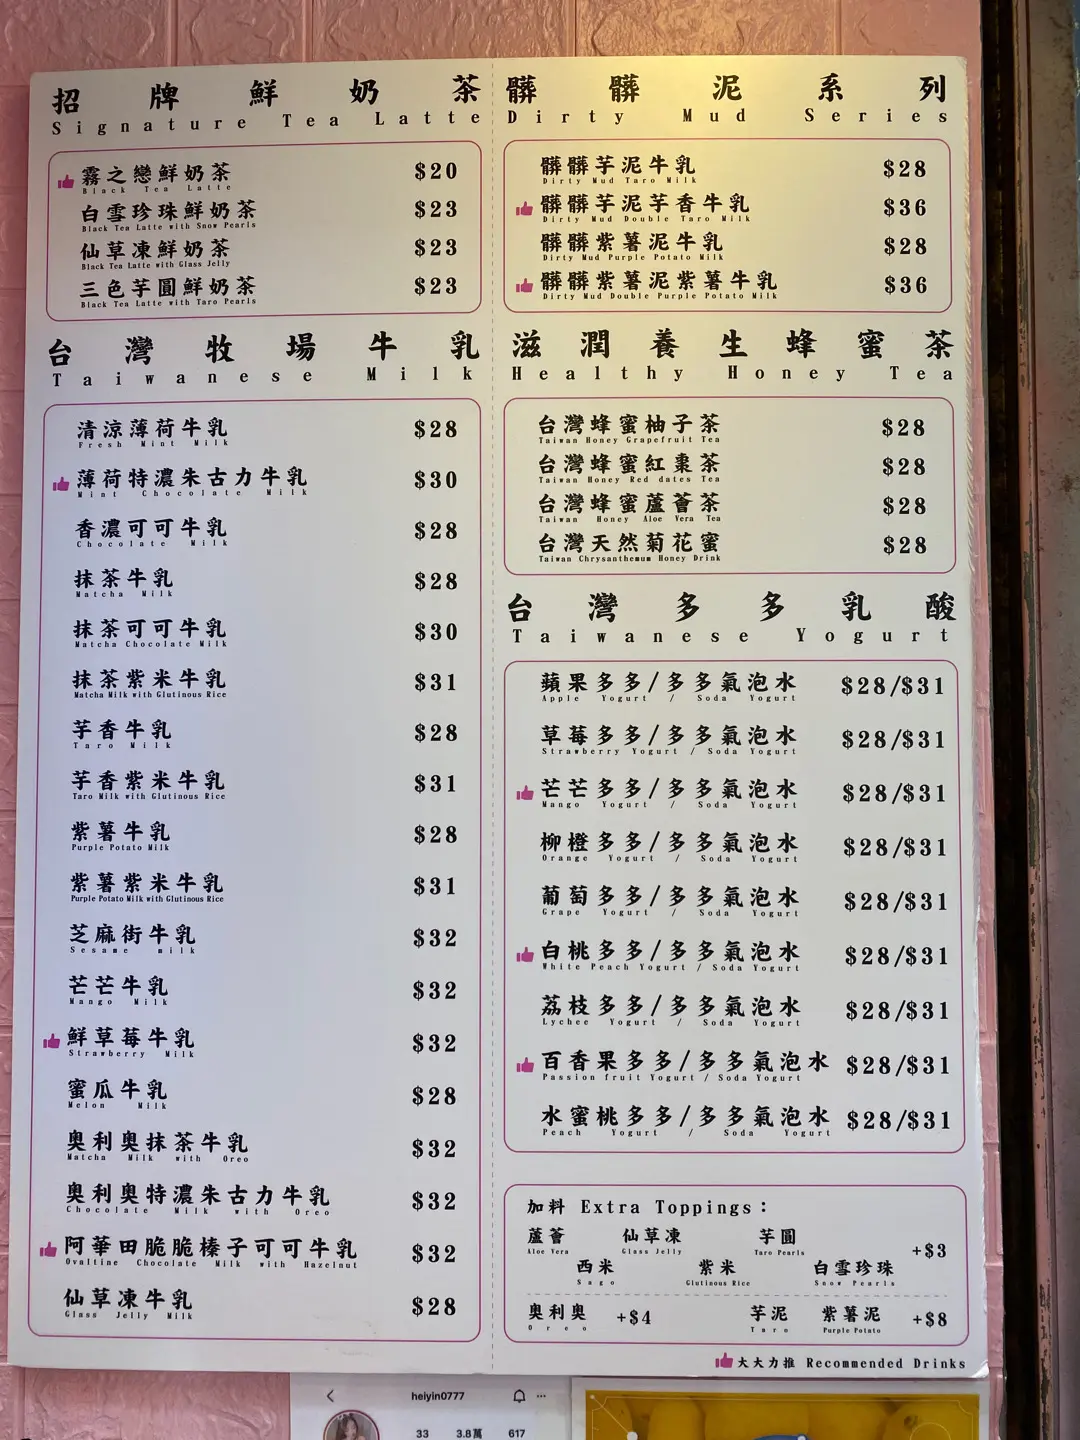 招牌鮮奶茶
Signature Tea Latte
霧之戀鮮奶茶 $20
Black Tea Latte
白雪珍珠鮮奶茶 $23
Black Tea Latte with Snow Pearls
仙草凍鮮奶茶 $23
Black Tea Latte with Glass Jelly
三色芋圓鮮奶茶 $23
Black Tea Latte with Taro Pearls
台灣牧場牛乳
Taiwanese Milk
清涼薄荷牛乳 $28
Fresh Mint Milk
薄荷特濃朱古力牛乳 $30
Mint Chocolate Milk
香濃可可牛乳 $28
Chocolate Milk
抹茶牛乳 $28
Matcha Milk
抹茶可可牛乳 $30
Matcha Chocolate Milk
抹茶紫米牛乳 $31
Matcha Milk with Glutinous Rice
芋香牛乳 $28
Taro Milk
芋香紫米牛乳 $31
Taro Milk with Glutinous Rice
紫薯牛乳 $28
Purple Potato Milk
紫薯紫米牛乳 $31
Purple Potato Milk with Glutinous Rice
芝麻街牛乳 $32
Sesame milk
芒芒牛乳 $32
Mango Milk
鮮草莓牛乳 $32
Strawberry Milk
蜜瓜牛乳 $28
Melon Milk
奧利奧抹茶牛乳 $32
Matcha Milk with Oreo
奧利奧特濃朱古力牛乳 $32
Chocolate Milk with Oreo
阿華田脆脆榛子可可牛乳 $32
Ovaltine Chocolate Milk with Hazelnut
仙草凍牛乳 $28
Glass Jelly Milk
髒髒泥系列
Dirty Mud Series
髒髒芋泥牛乳 $28
Dirty Mud Taro Milk
髒髒芋泥芋香牛乳 $36
Dirty Mud Double Taro Milk
髒髒紫薯泥牛乳 $28
Dirty Mud Purple Potato Milk
髒髒紫薯泥紫薯牛乳 $36
Dirty Mud Double Purple Potato Milk
滋潤養生蜂蜜茶
Healthy Honey Tea
台灣蜂蜜柚子茶 $28
Taiwan Honey Grapefruit Tea
台灣蜂蜜紅棗茶 $28
Taiwan Honey Red dates Tea
台灣蜂蜜蘆薈茶 $28
Taiwan Honey Aloe Vera Tea
台灣天然菊花蜜 $28
Taiwan Chrysanthemum Honey Drink
台灣多多乳酸
Taiwanese Yogurt
蘋果多多/多多氣泡水 $28/$31
Apple Yogurt / Soda Yogurt
草莓多多/多多氣泡水 $28/$31
Strawberry Yogurt / Soda Yogurt
芒芒多多/多多氣泡水 $28/$31
Mango Yogurt / Soda Yogurt
柳橙多多/多多氣泡水 $28/$31
Orange Yogurt / Soda Yogurt
葡萄多多/多多氣泡水 $28/$31
Grape Yogurt / Soda Yogurt
白桃多多/多多氣泡水 $28/$31
White Peach Yogurt / Soda Yogurt
荔枝多多/多多氣泡水 $28/$31
Lychee Yogurt / Soda Yogurt
百香果多多/多多氣泡水 $28/$31
Passion fruit Yogurt / Soda Yogurt
水蜜桃多多/多多氣泡水 $28/$31
Peach Yogurt / Soda Yogurt
加料 Extra Toppings：
蘆薈 仙草凍 芋圓
Aloe Vera Glass Jelly Taro Pearls
+$3
西米 紫米 白雪珍珠
Sago Glutinous Rice Snow Pearls
奧利奧 +$4 芋泥 紫薯泥 +$8
Oreo Taro Purple Potato
大大力推 Recommended Drinks
heiyin0777
33 3.8萬 617